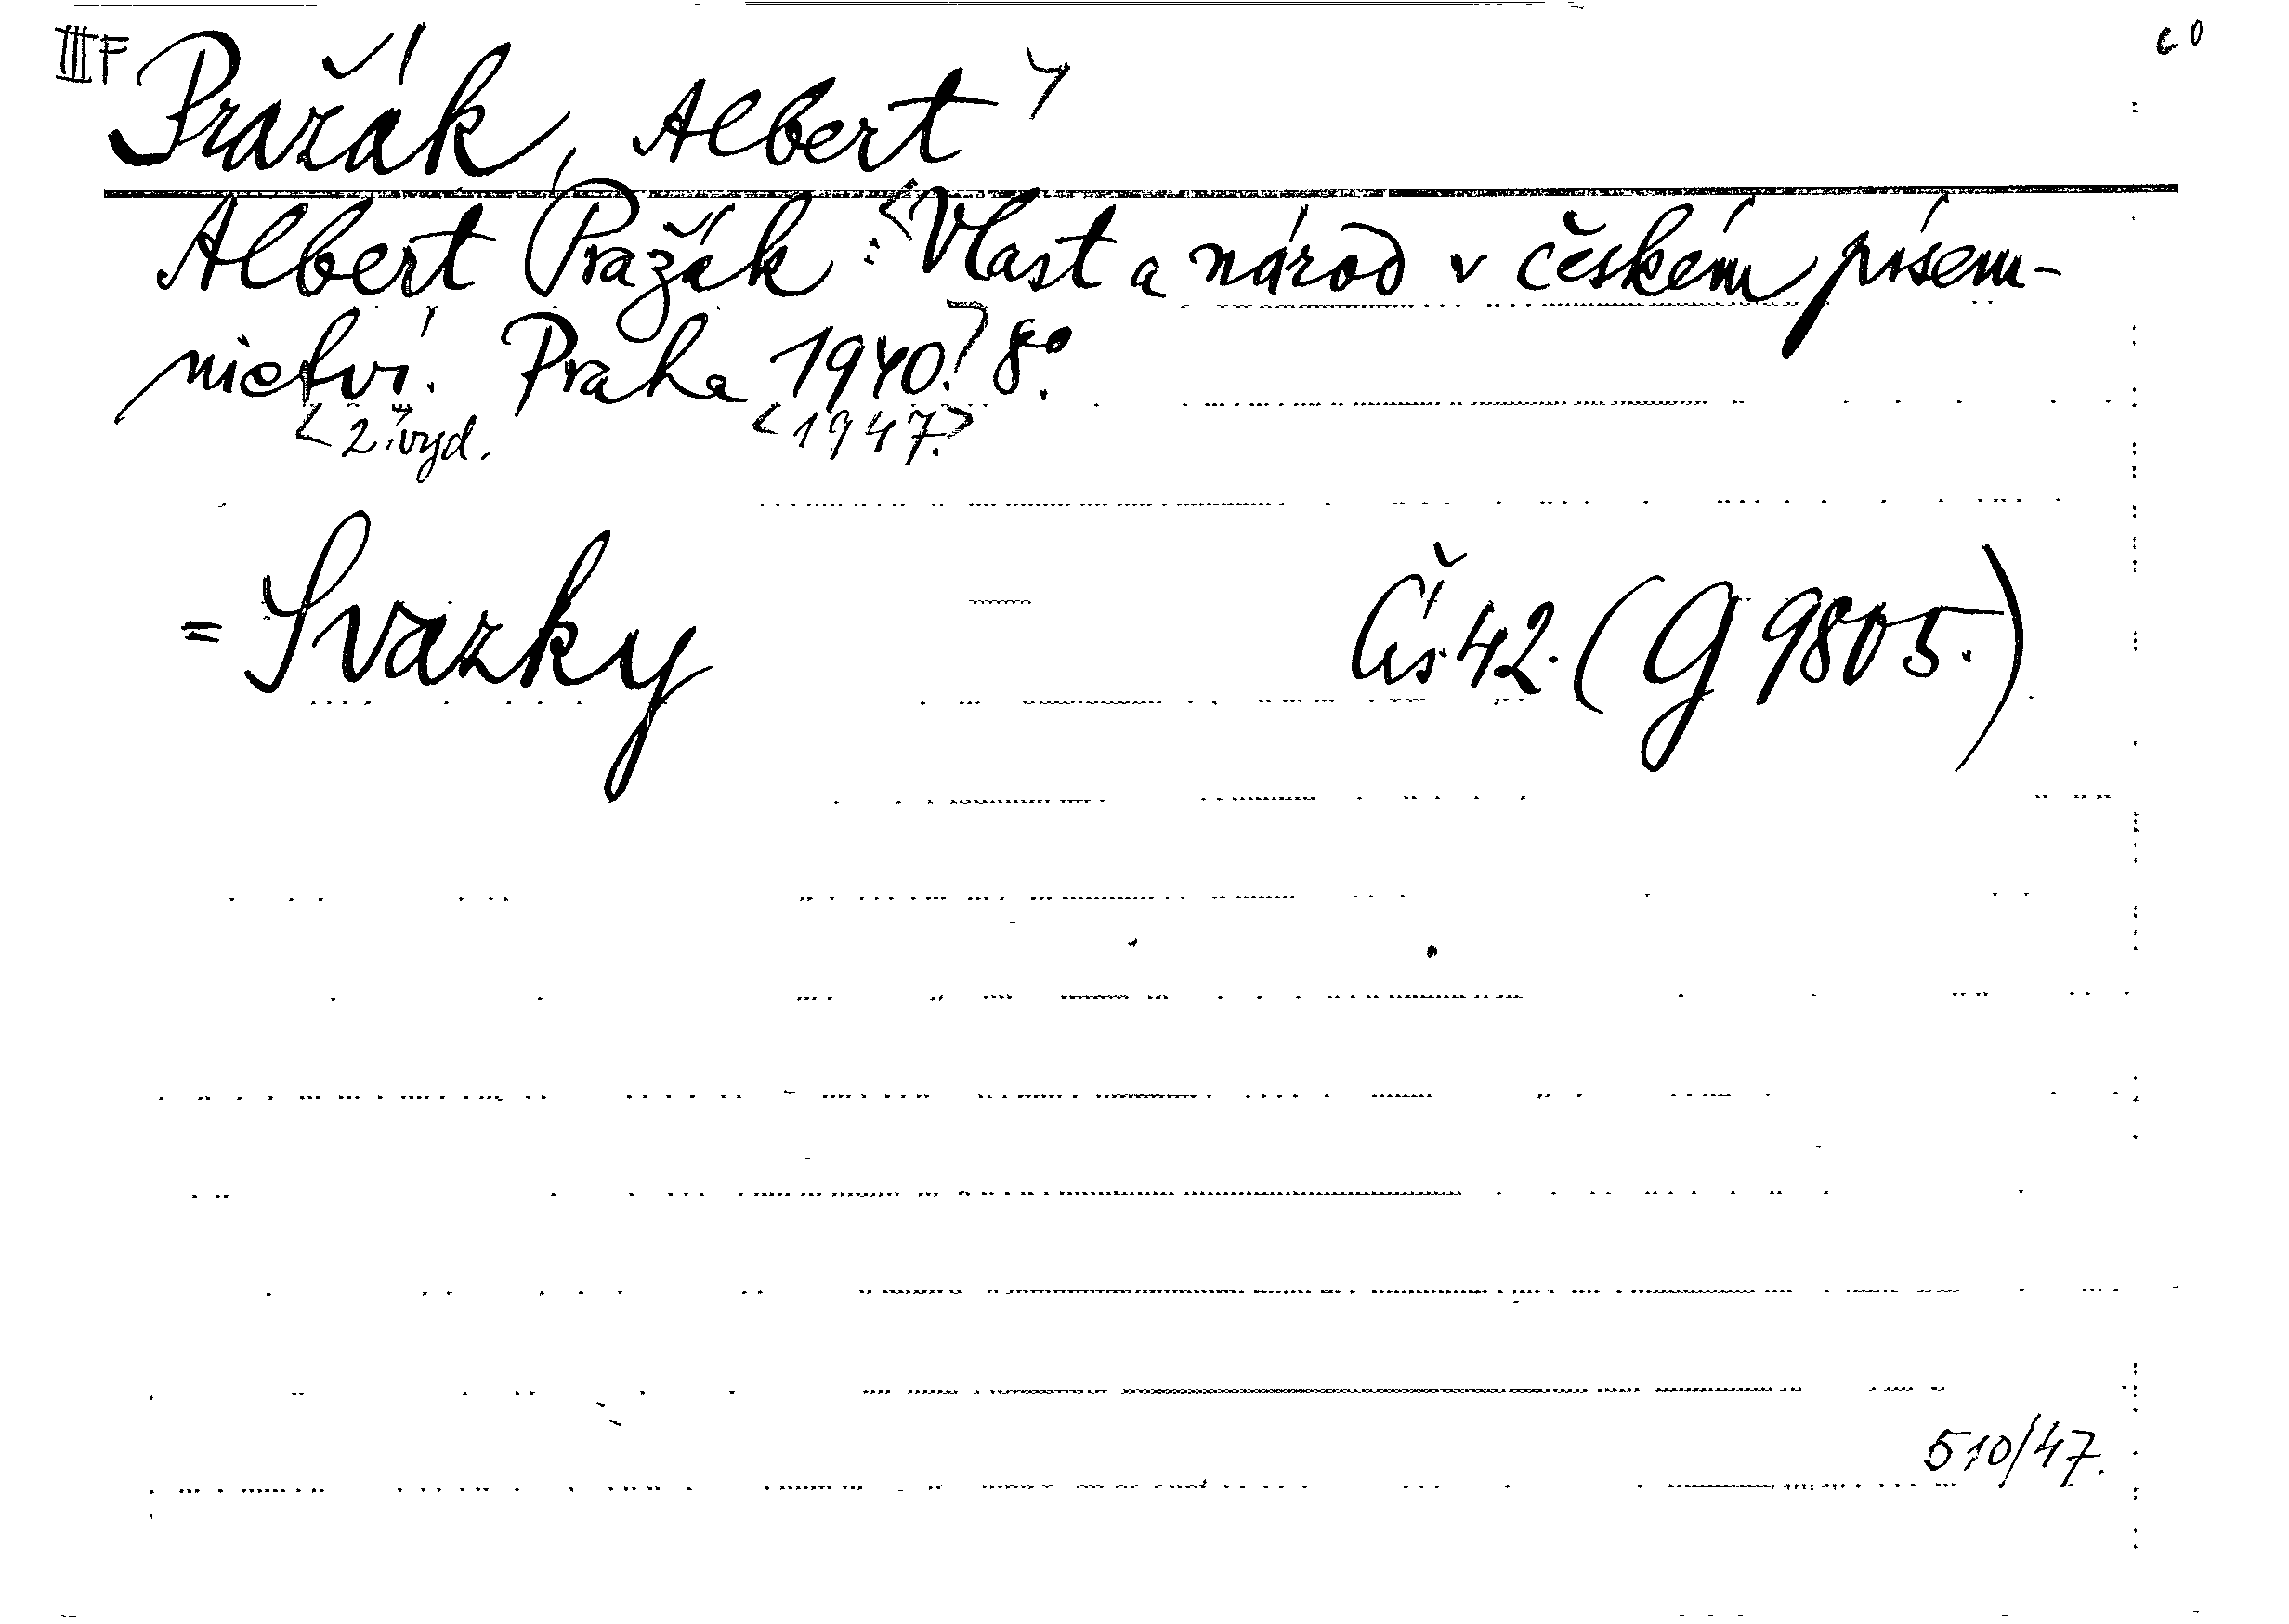 III F
Pražák, Albert
Albert Pražák: <Vlast a národ v českém písem-
nictví. Praha 1940.> 8°.
<2. vyd. <1947.>
= Svazky Čís. 42. (G 9805.)
510/47.